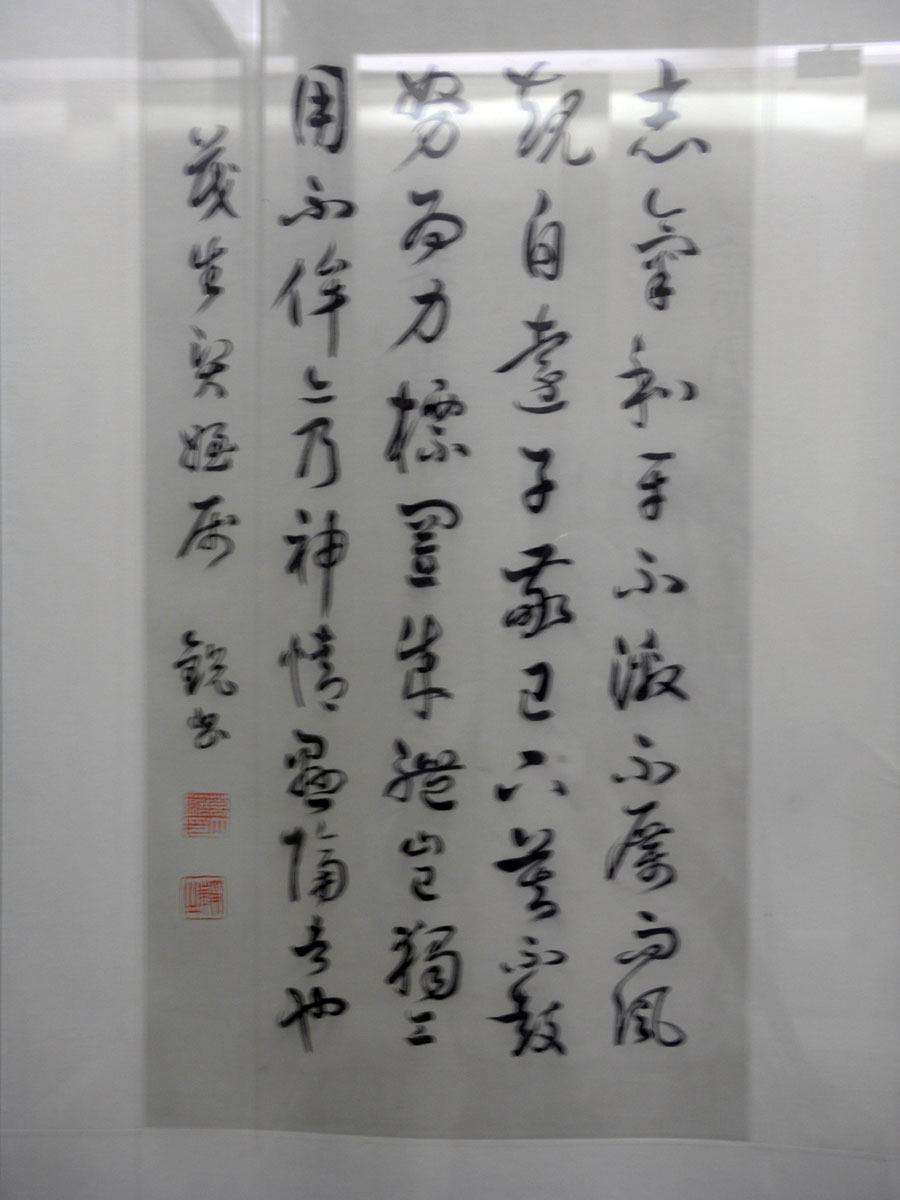 志氣和平不激不厲而風
規自遠子敬已下莫不鼓
努為力標置成體豈獨工
用不侔亦乃神情懸隔者也
茂生賢姪屬 銳書